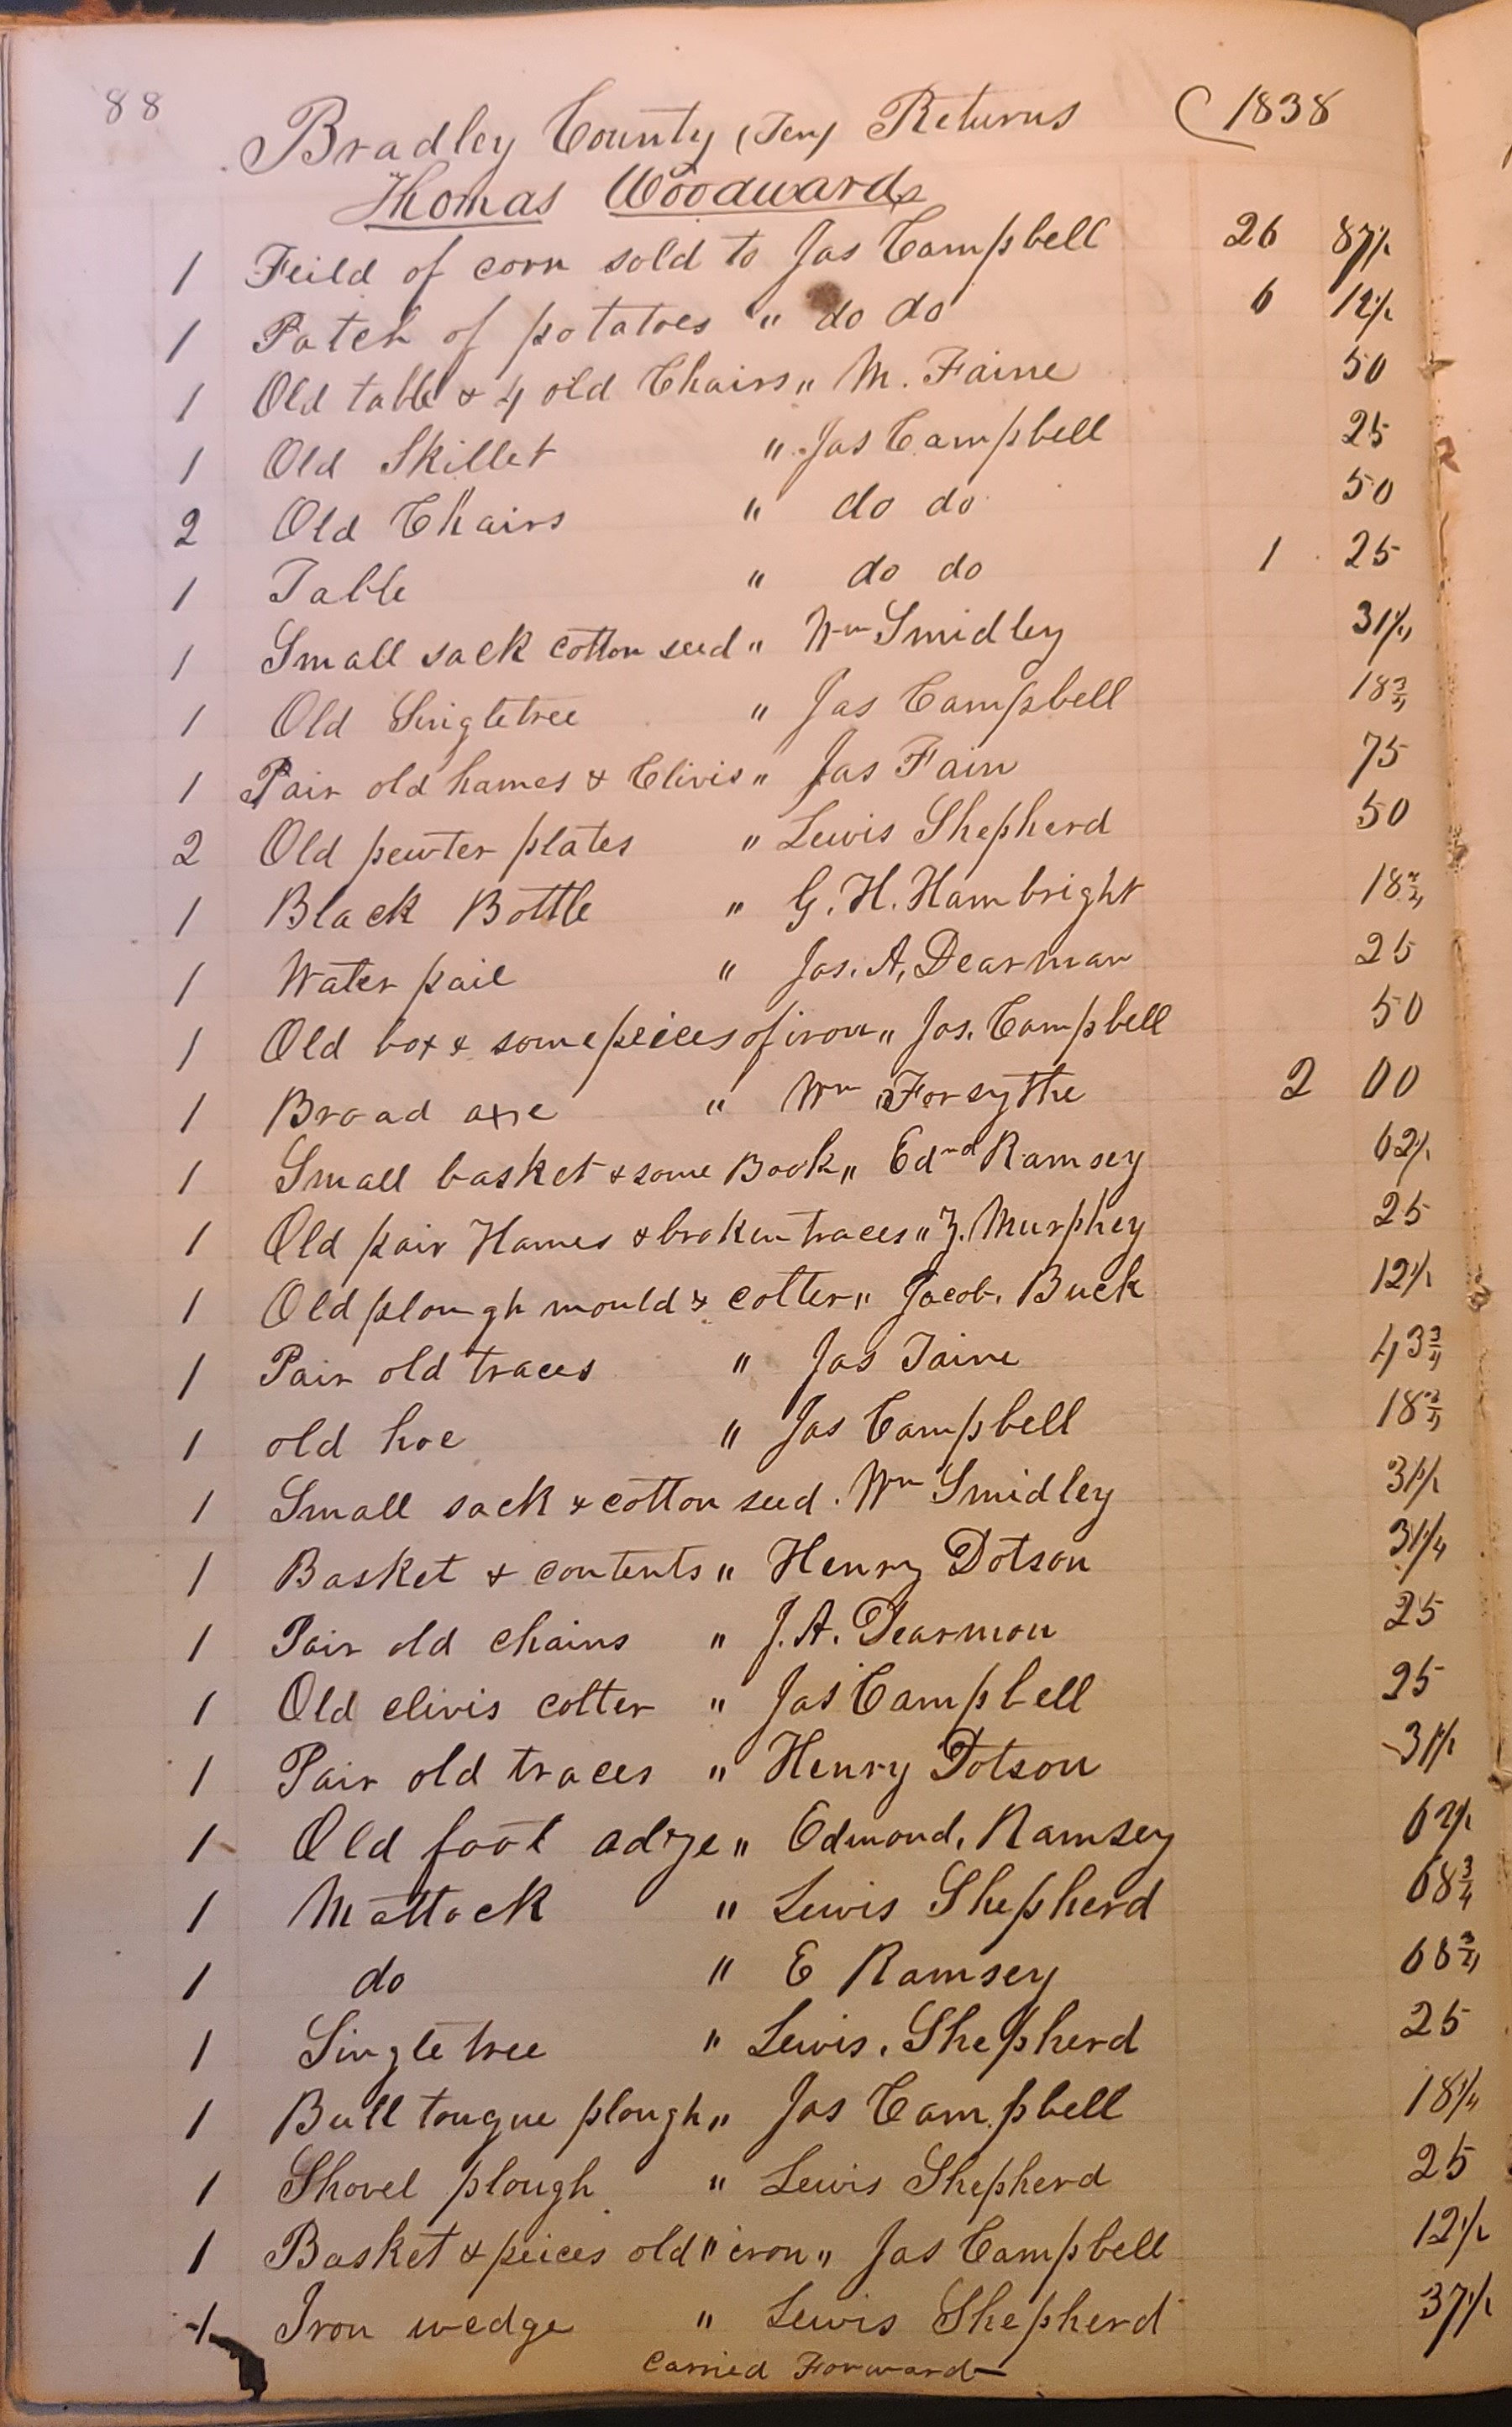 88
Bradley County (Ten) Returns 1838
Thomas Woodward
1 Feild of corn sold to Jas Campbell 26 87½
1 Patch of potatoes " do do 6 12½
1 Old table & 4 old Chairs " M. Faine 50
1 Old Skillet " Jas Campbell 25
2 Old Chairs " do do 50
1 Table " do do 1 25
1 Small sack cotton seed " Wm Smidley 31¼
1 Old Singletree " Jas Campbell 18¾
1 Pair old hames & Clivis " Jas Fain 75
2 Old pewter plates " Lewis Shepherd 50
1 Black Bottle " G. H. Hambright 18¾
1 Water pail " Jas. A. Dearman 25
1 Old box & some peices of iron " Jas. Campbell 50
1 Broad axe " Wm Forsythe 2 00
1 Small basket & some Book " Edmd Ramsey 62½
1 Old pair Hames & broken traces " Z. Murphey 25
1 Old plough mould & colter " Jacob. Buck 12½
1 Pair old traces " Jas Taine 43¾
1 old hoe " Jas Campbell 18¾
1 Small sack & cotton seed. Wm Smidley 31½
1 Basket & contents " Henry Dotson 31¼
1 Pair old chains " J. A. Dearmon 25
1 Old clivis colter " Jas Campbell 25
1 Pair old traces " Henry Dotson 31½
1 Old foot adze " Edmond. Ramsey 62½
1 Mattock " Lewis Shepherd 68¾
1 do " E Ramsey 68¾
1 Singletree " Lewis. Shepherd 25
1 Bull tongue plough " Jas Campbell 18¼
1 Shovel plough " Lewis Shepherd 25
1 Basket & peices old " iron " Jas Campbell 12½
1 Iron wedge " Lewis Shepherd 37½
Carried Forward